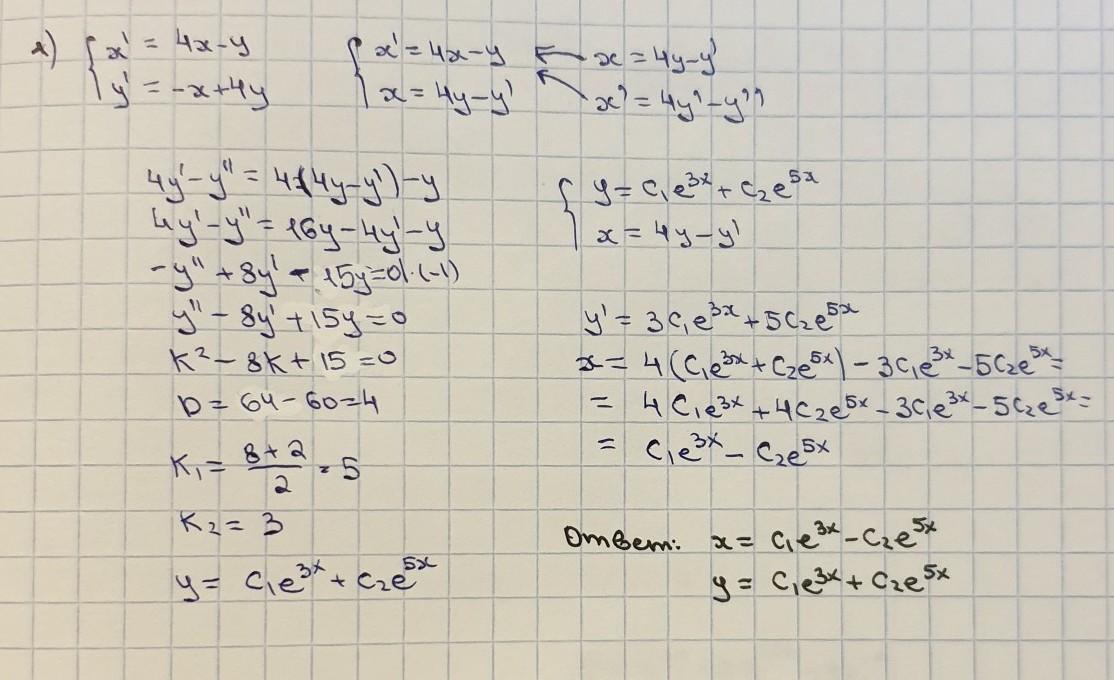 1) { x' = 4x-y
y' = -x+4y
{ x' = 4x-y ← x = 4y-y'
x = 4y-y' ← x' = 4y'-y''
4y'-y'' = 4(4y-y')-y
4y'-y'' = 16y-4y'-y
-y'' + 8y' - 15y=0|·(-1)
y'' - 8y' + 15y = 0
K² - 8K + 15 = 0
D = 64 - 60 = 4
K₁ = (8+2)/2 = 5
K₂ = 3
y = C₁e^{3x} + C₂e^{5x}
{ y = C₁e^{3x} + C₂e^{5x}
x = 4y-y'
y' = 3C₁e^{3x} + 5C₂e^{5x}
x = 4(C₁e^{3x} + C₂e^{5x}) - 3C₁e^{3x} - 5C₂e^{5x} =
= 4C₁e^{3x} + 4C₂e^{5x} - 3C₁e^{3x} - 5C₂e^{5x} =
= C₁e^{3x} - C₂e^{5x}
Ответ: x = C₁e^{3x} - C₂e^{5x}
y = C₁e^{3x} + C₂e^{5x}